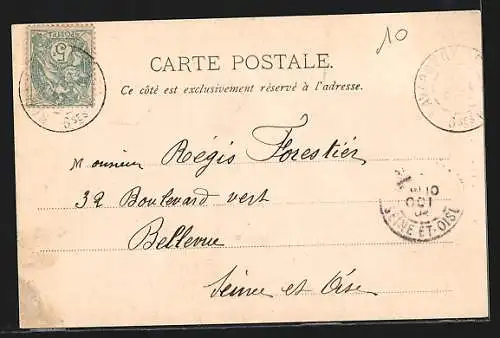 10
5
POSTES
CARTE POSTALE.
Ce côté est exclusivement réservé à l'adresse.
Monsieur Régis Forestier
32 Boulevard vert
Bellevue
Seine et Oise
SEINE-ET-OISE